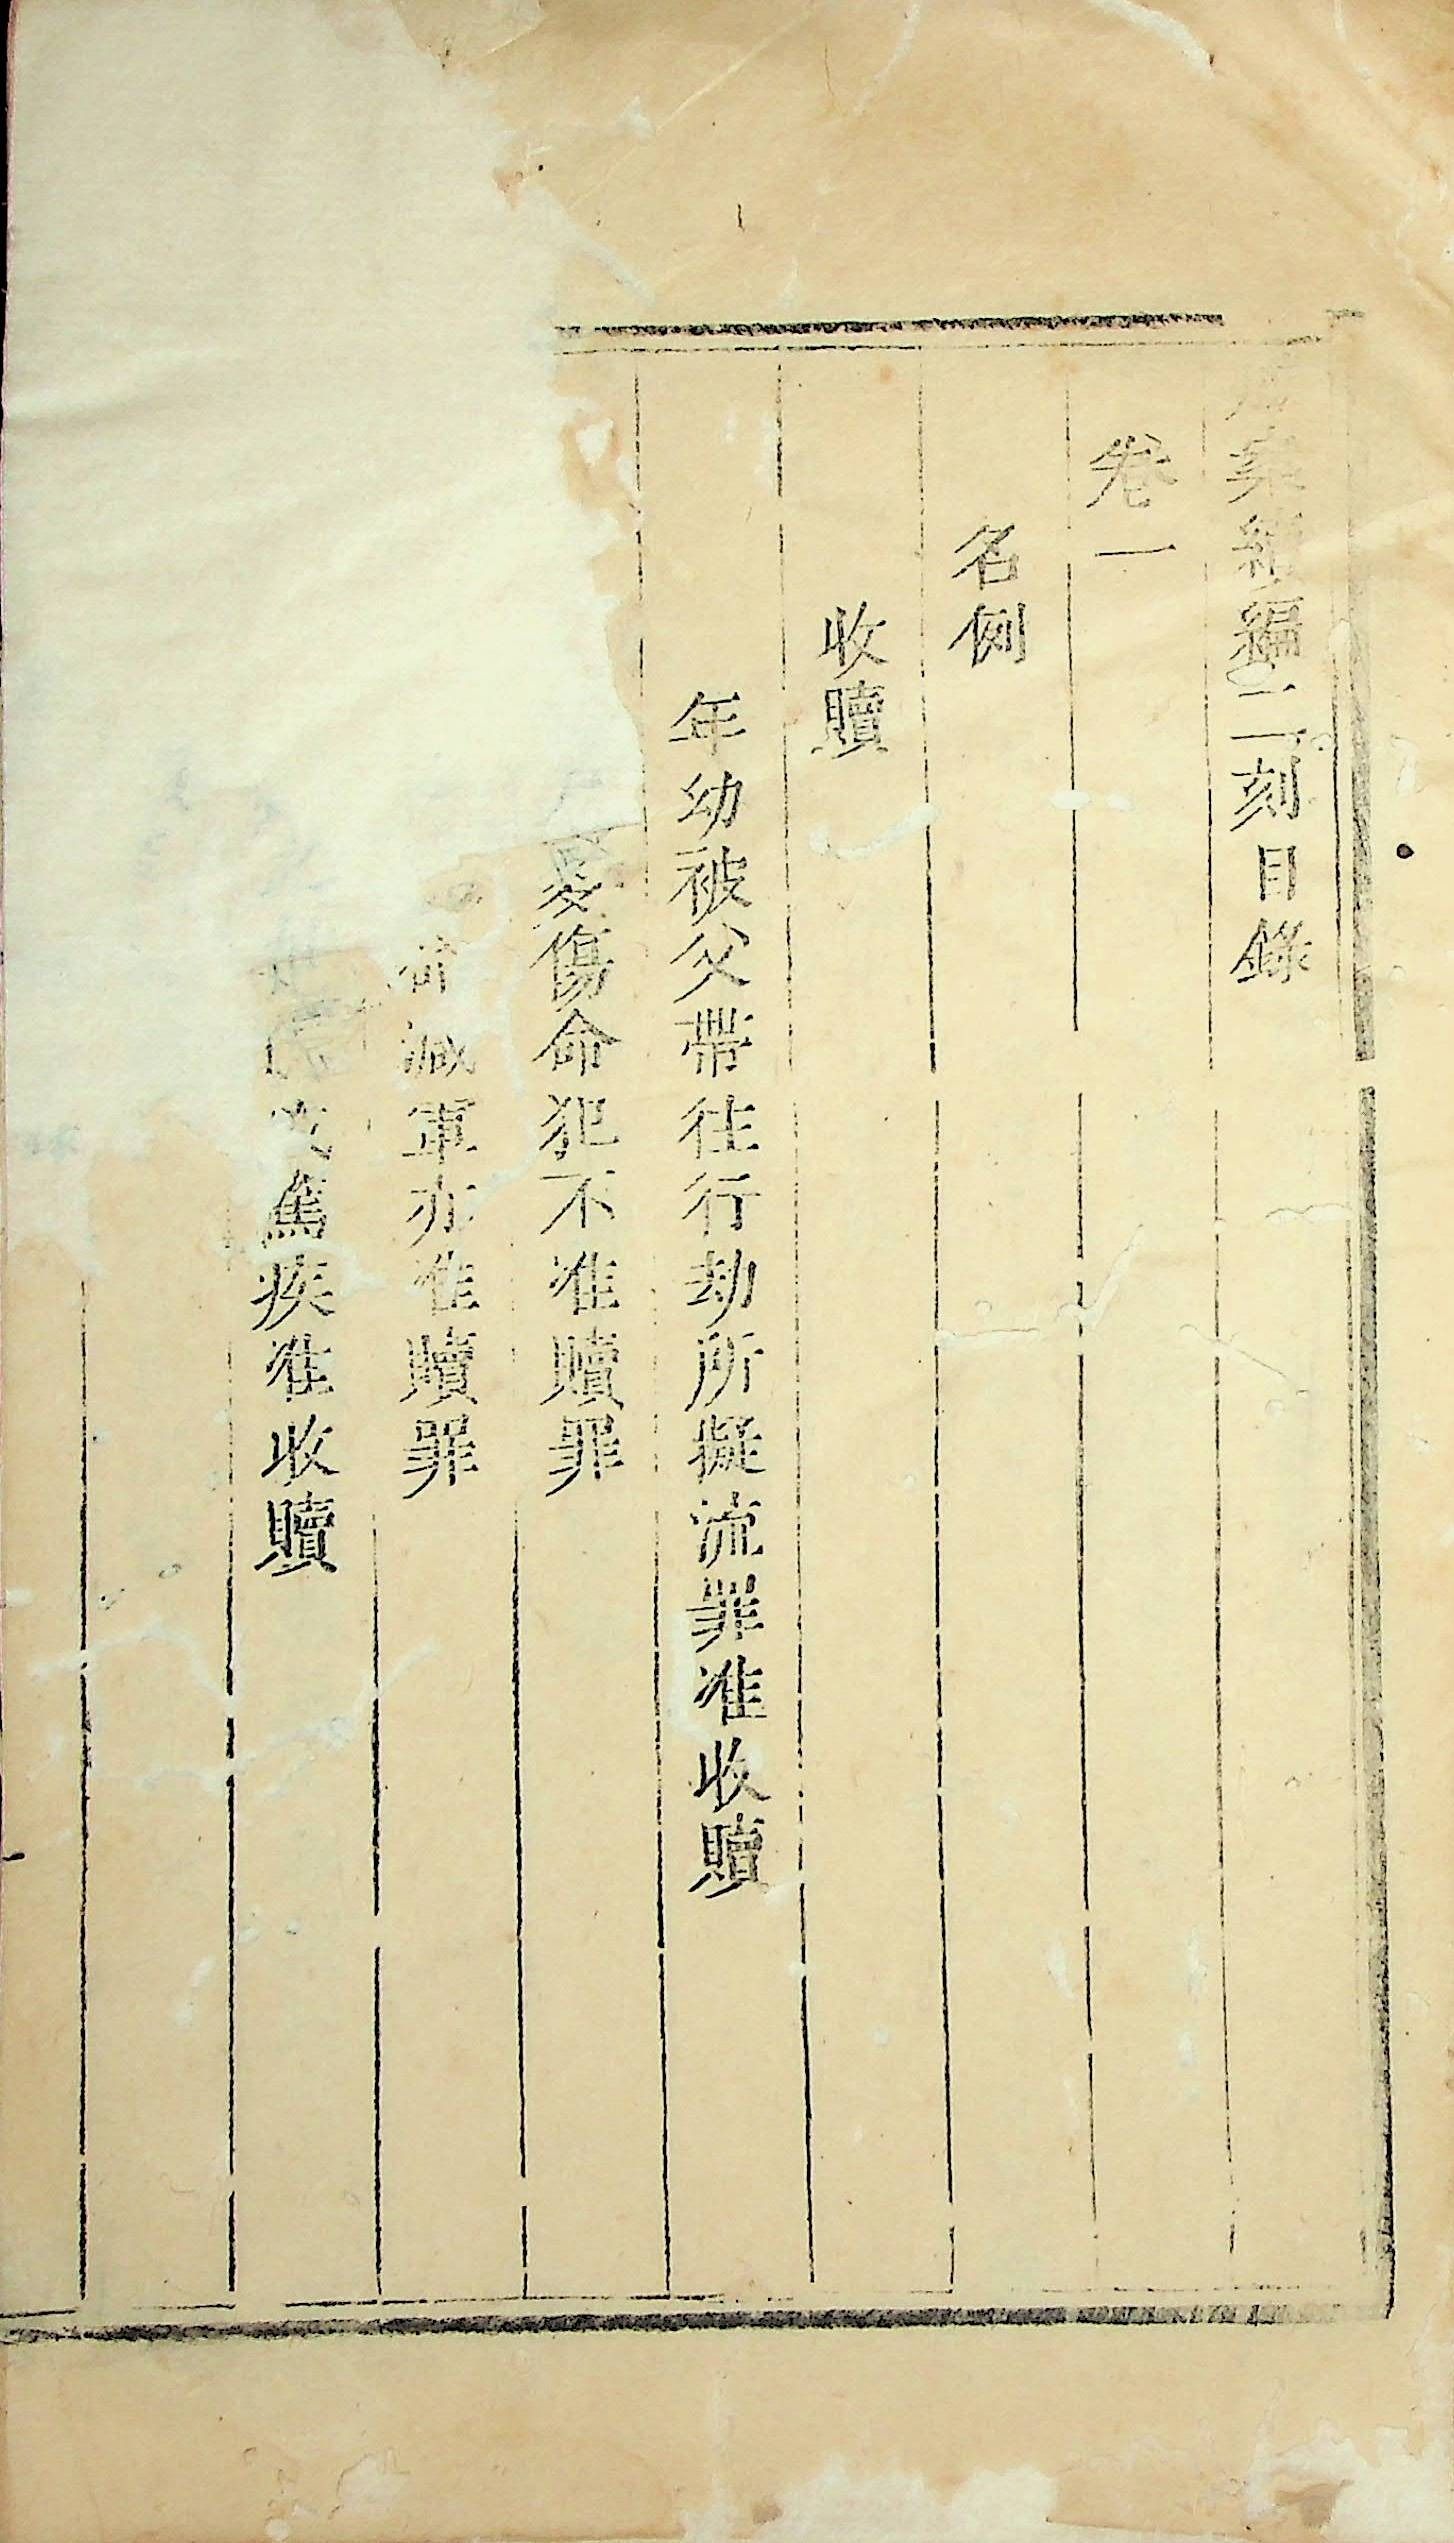 案續編二刻目錄
卷一
名例
收贖
年幼被父帶往行劫所擬流罪准收贖
傷命犯不准贖罪
減軍亦准贖罪
篤疾准收贖